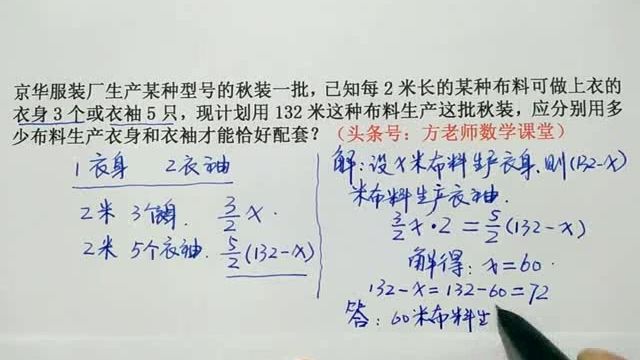 京华服装厂生产某种型号的秋装一批，已知每 2 米长的某种布料可做上衣的
衣身 3 个或衣袖 5 只，现计划用 132 米这种布料生产这批秋装，应分别用多
少布料生产衣身和衣袖才能恰好配套？（头条号：方老师数学课堂）
1衣身 2衣袖
2米 3个 3/2 x .
2米 5个衣袖. 5/2 (132-x)
解:设x米布料生产衣身.则(132-x)
米布料生产衣袖.
3/2 x·2 = 5/2 (132-x)
解得: x=60.
132-x=132-60=72
答: 60米布料生